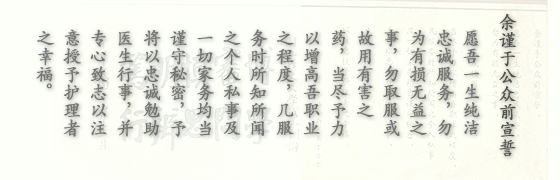 余谨于公众前宣誓
愿吾一生纯洁
忠诚服务，勿
为有损无益之
事，勿取服或
故用有害之
药，当尽予力
以增高吾职业
之程度，凡服
务时所知所闻
之个人私事及
一切家务均当
谨守秘密，予
将以忠诚勉助
医生行事，并
专心致志以注
意授予护理者
之幸福。